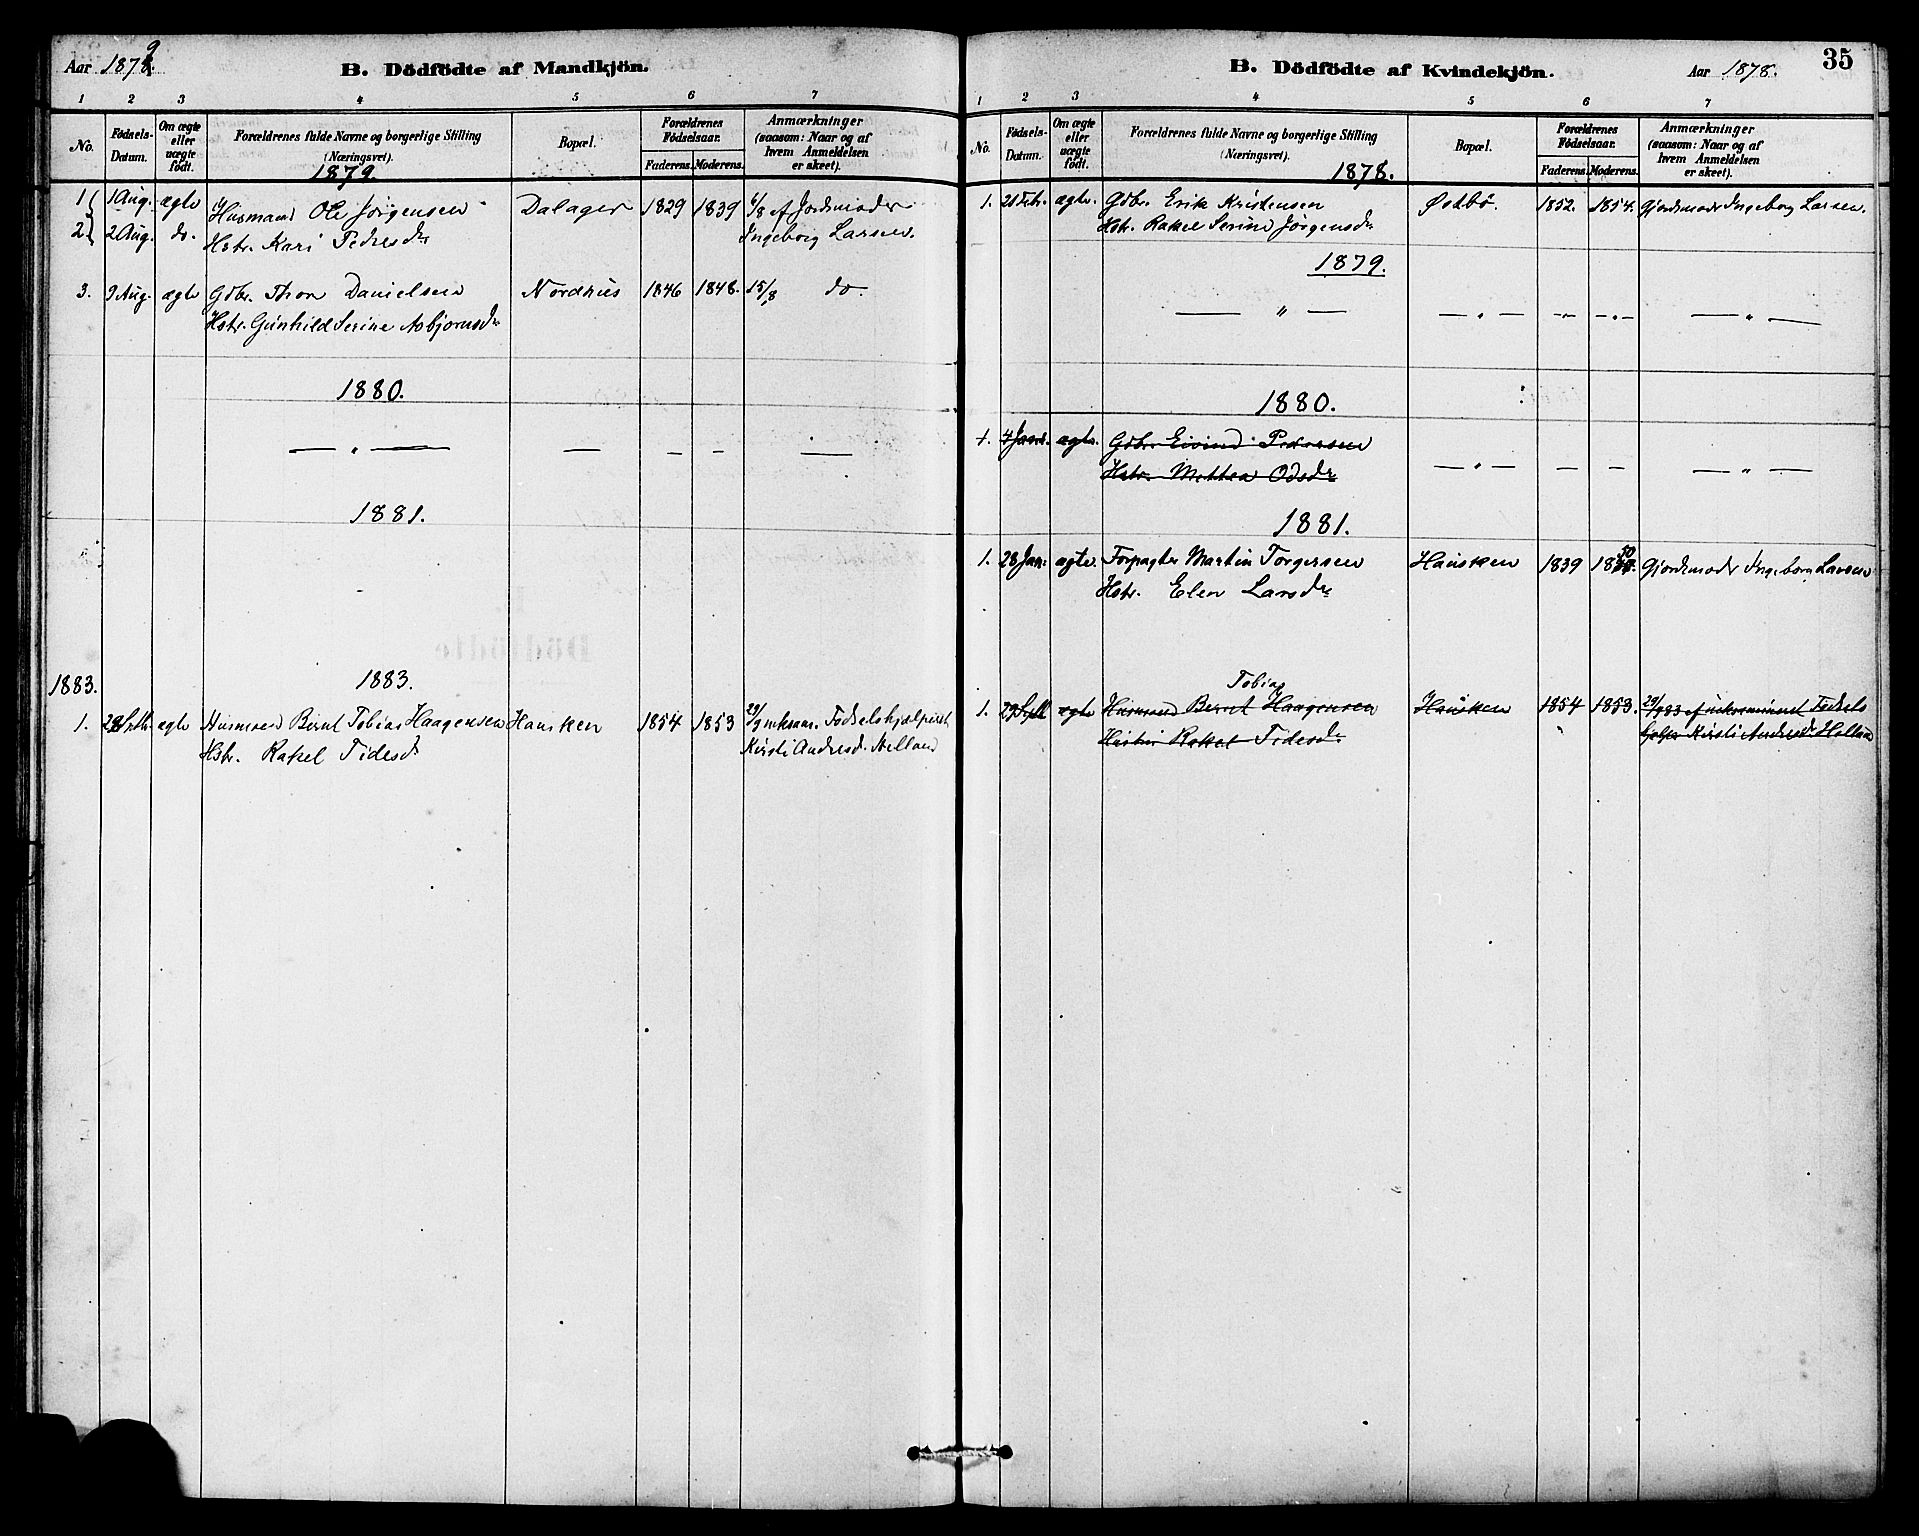 Aar 1879.
B. Dödfödte af Mandkjön.
1 2 3 4 5 6 7
No. Fødsels-Datum. Om ægte eller uægte født. Forældrenes fulde Navne og borgerlige Stilling (Næringsvei). Bopæl. Forældrenes Fødselsaar. Faderens. Moderens. Anmærkninger (saasom: Naar og af hvem Anmeldelsen er skeet).
1879.
1 1 Aug. ægte Husmand Ole Jörgensen Dalager 1829 1839 6/8 af Jordemoder
2 2 Aug. do. Hstr. Kari Pedersdr Ingeborg Larsen.
3. 9 Aug. ægte Gdbr. Thore Danielsen Nordhus 1846 1848. 15/8 do.
Hstr. Gunhild Serine Asbjörnsdr
1880.
— " — — — — —
1881.
1883. 1883.
1. 29 Septbr ægte Husmand Bernt Tobias Haagensen Hausken 1854 1853 29/9 ueksam. Födselshjælperske
Hstr. Rakel Tidesdr Kirsti Andresd. Helland
B. Dödfödte af Kvindekjön.
Aar 1878.
35
1 2 3 4 5 6 7
No. Fødsels-Datum. Om ægte eller uægte født. Forældrenes fulde Navne og borgerlige Stilling (Næringsvei). Bopæl. Forældrenes Fødselsaar. Faderens. Moderens. Anmærkninger (saasom: Naar og af hvem Anmeldelsen er skeet).
1878.
1. Febr. ægte. Gdbr. Erik Kristensen Østbö. 1852. 1854. Gjordemoder Ingeborg Larsen.
Hstr. Rakel Serine Jörgensdr
1879.
— " — — " — — " — — " — — " —
1880.
1. 4 Jan. ægte. Gdbr. Eivind Pedersen
Hstr. Mettea Odsdr — " — — — — " —
1881.
1. 28 Jan. ægte. Forpagter Martin Torgersen Hausken 1839 1850 Gjordemoder Ingeborg Larsen
Hstr. Elen Larsdr
Tobias
1. 29 Septb ægte Husmand Bernt Haagensen Hausken 1854 1853. 29/9 83 af uexamineret Födsels
Hustru Rakel Tidesdr hjelper Kirsti Andresdr Helland